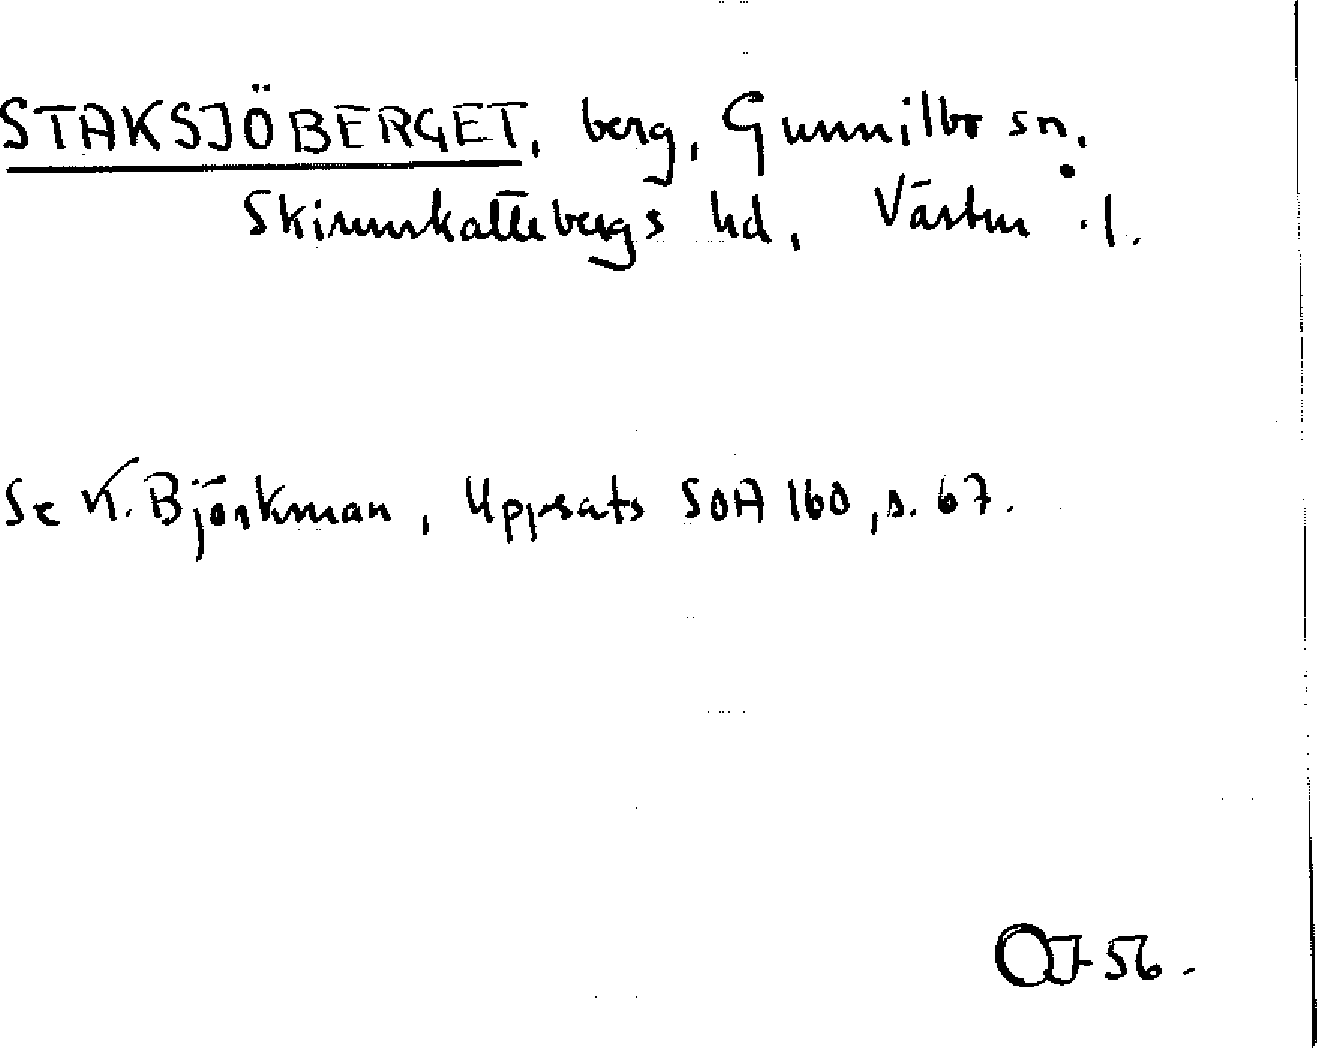 STAKSJÖBERGET, berg, Gunnilbo sn,
Skinnskattebergs hd, Västm. l.
Se K. Björkman, Uppsats SOA 160, s. 67.
OJ-56.